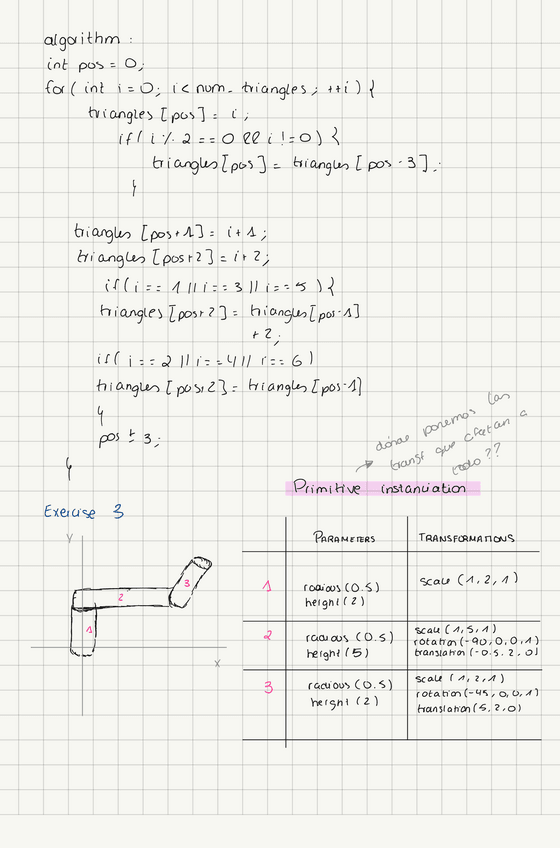 algorithm :
int pos = 0;
for( int i = 0; i < num_triangles; ++i) {
triangles [pos] = i;
if( i % 2 == 0 && i != 0) {
triangles [pos] = triangles [pos - 3];
}
triangles [pos+1] = i+1;
triangles [pos+2] = i+2;
if(i == 1 || i == 3 || i == 5 ) {
triangles [pos+2] = triangles[pos-1]
+2;
if( i == 2 || i == 4 || i == 6)
triangles [pos+2] = triangles[pos-1]
}
pos += 3;
}
dónde ponemos las
transf que afectan a
todo??
Primitive instanciation
Exercise 3
Y
X
1
2
3
PARAMETERS TRANSFORMATIONS
1 radious (0.5) scale (1,2,1)
height (2)
2 radious (0.5) scale (1,5,1)
height (5) rotation(-90,0,0,1)
translation(-0.5,2,0)
3 radious (0.5) scale (1,2,1)
height (2) rotation(-45,0,0,1)
translation(5,2,0)